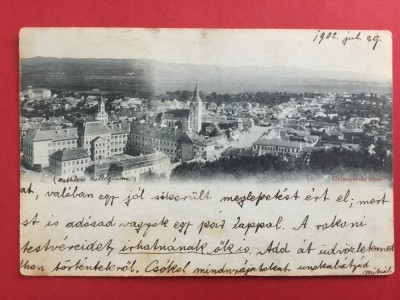 1902. jul. 29.
(Bethlen kollégium)
at, valóban egy jól sikerült meglepetést ért el; mert
st is adósad vagyok egy pár lappal. A rokoni
testvéreidet, írhatnának ők is. Add át üdvözletemet
thon történtekről. Csókol mindnyájatokat unokabátyád